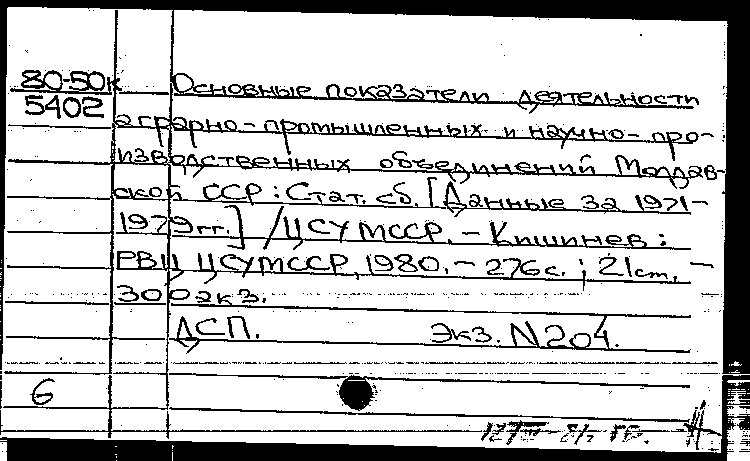 80-50к
5402
Основные показатели деятельности
аграрно-промышленных и научно-про-
изводственных объединений Молдав-
ской ССР: Стат. сб. [Данные за 1971-
1979гг.] / ЦСУ МССР. - Кишинев:
РВЦ ЦСУ МССР, 1980. - 276с.; 21cm. -
300экз.
ДСП. Экз. N204.
6